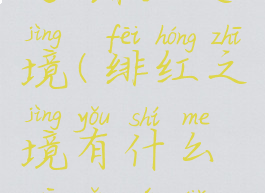 jìng fēi hóng zhī
境(绯红之
jìng yǒu shí me
境有什么